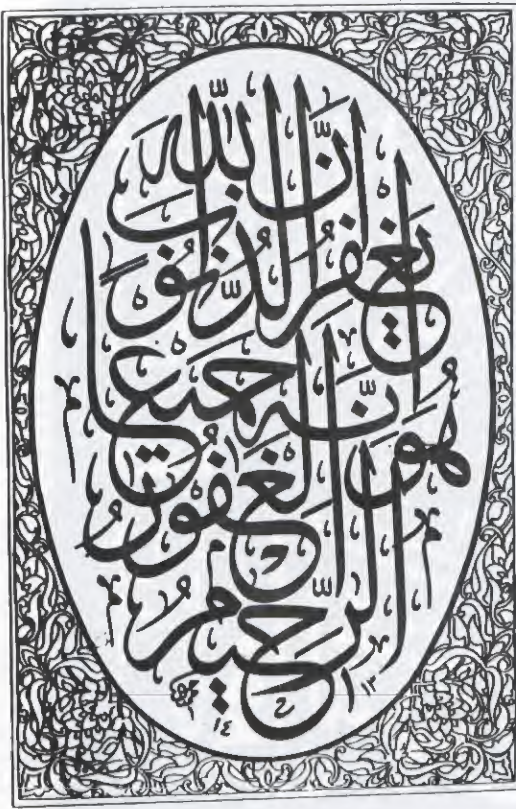 إِنَّ اللَّهَ
يَغْفِرُ الذُّنُوبَ
جَمِيعًا إِنَّهُ
هُوَ الْغَفُورُ
الرَّحِيمُ
١٣
١٤